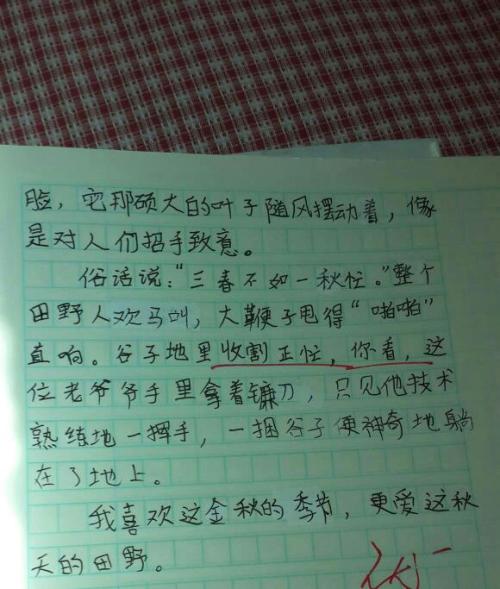 脸，它那硕大的叶子随风摆动着，像
是对人们招手致意。
俗话说：“三春不如一秋忙。”整个
田野人欢马叫，大鞭子甩得“啪啪”
直响。谷子地里收割正忙，你看，这
位老爷爷手里拿着镰刀，只见他技术
熟练地一挥手，一捆谷子便神奇地躺
在了地上。
我喜欢这金秋的季节，更爱这秋
天的田野。